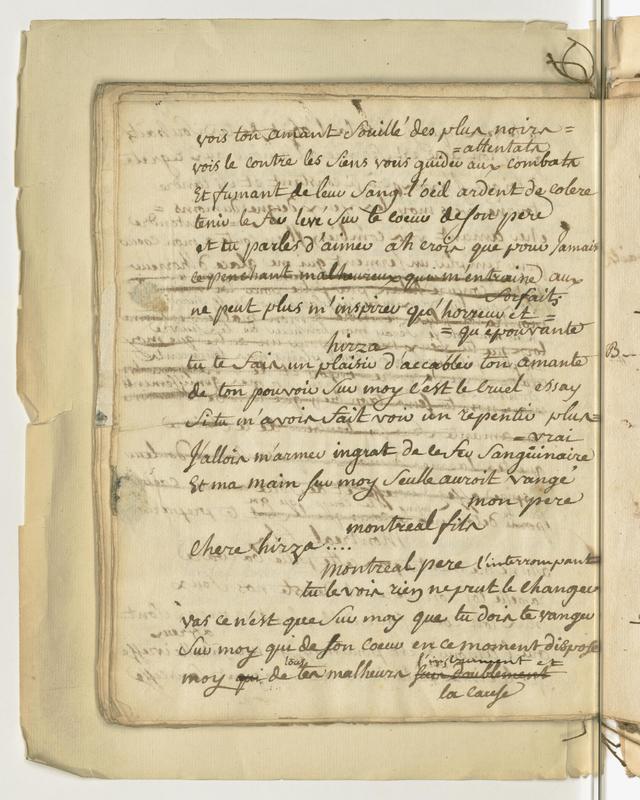 vois ton amant Souillé des plus noirs =
= attentats
vois le contre les Siens vous guider aux combats
Et fumant de leur Sang l'oeil ardent de colere
tenir le fer levé Sur le coeur de son pere
et tu parles d'aimer ah crois que pour Jamais
ce penchant malheureux qui m'entraine aux
forfaits
ne peut plus m'inspirer qu'horreur et =
= qu'épouvante
hirza
tu te fais un plaisir d'accabler ton amante
de ton pouvoir Sur moy c'est le cruel essay
Si tu m'avois fait voir un repentir plus =
= vrai
J'allois m'armer ingrat de ce fer Sanguinaire
Et ma main Sur moy Seulle auroit vangé
mon pere
montreal fils
chere hirza ....
montreal pere l'interrompant
tu le vois rien ne peut le changer
vas ce n'est que Sur moy que tu dois te vanger
Sur moy qui de Son coeur en ce moment dispose
moy qui de tous tes malheurs l'instrument et
la cause
B